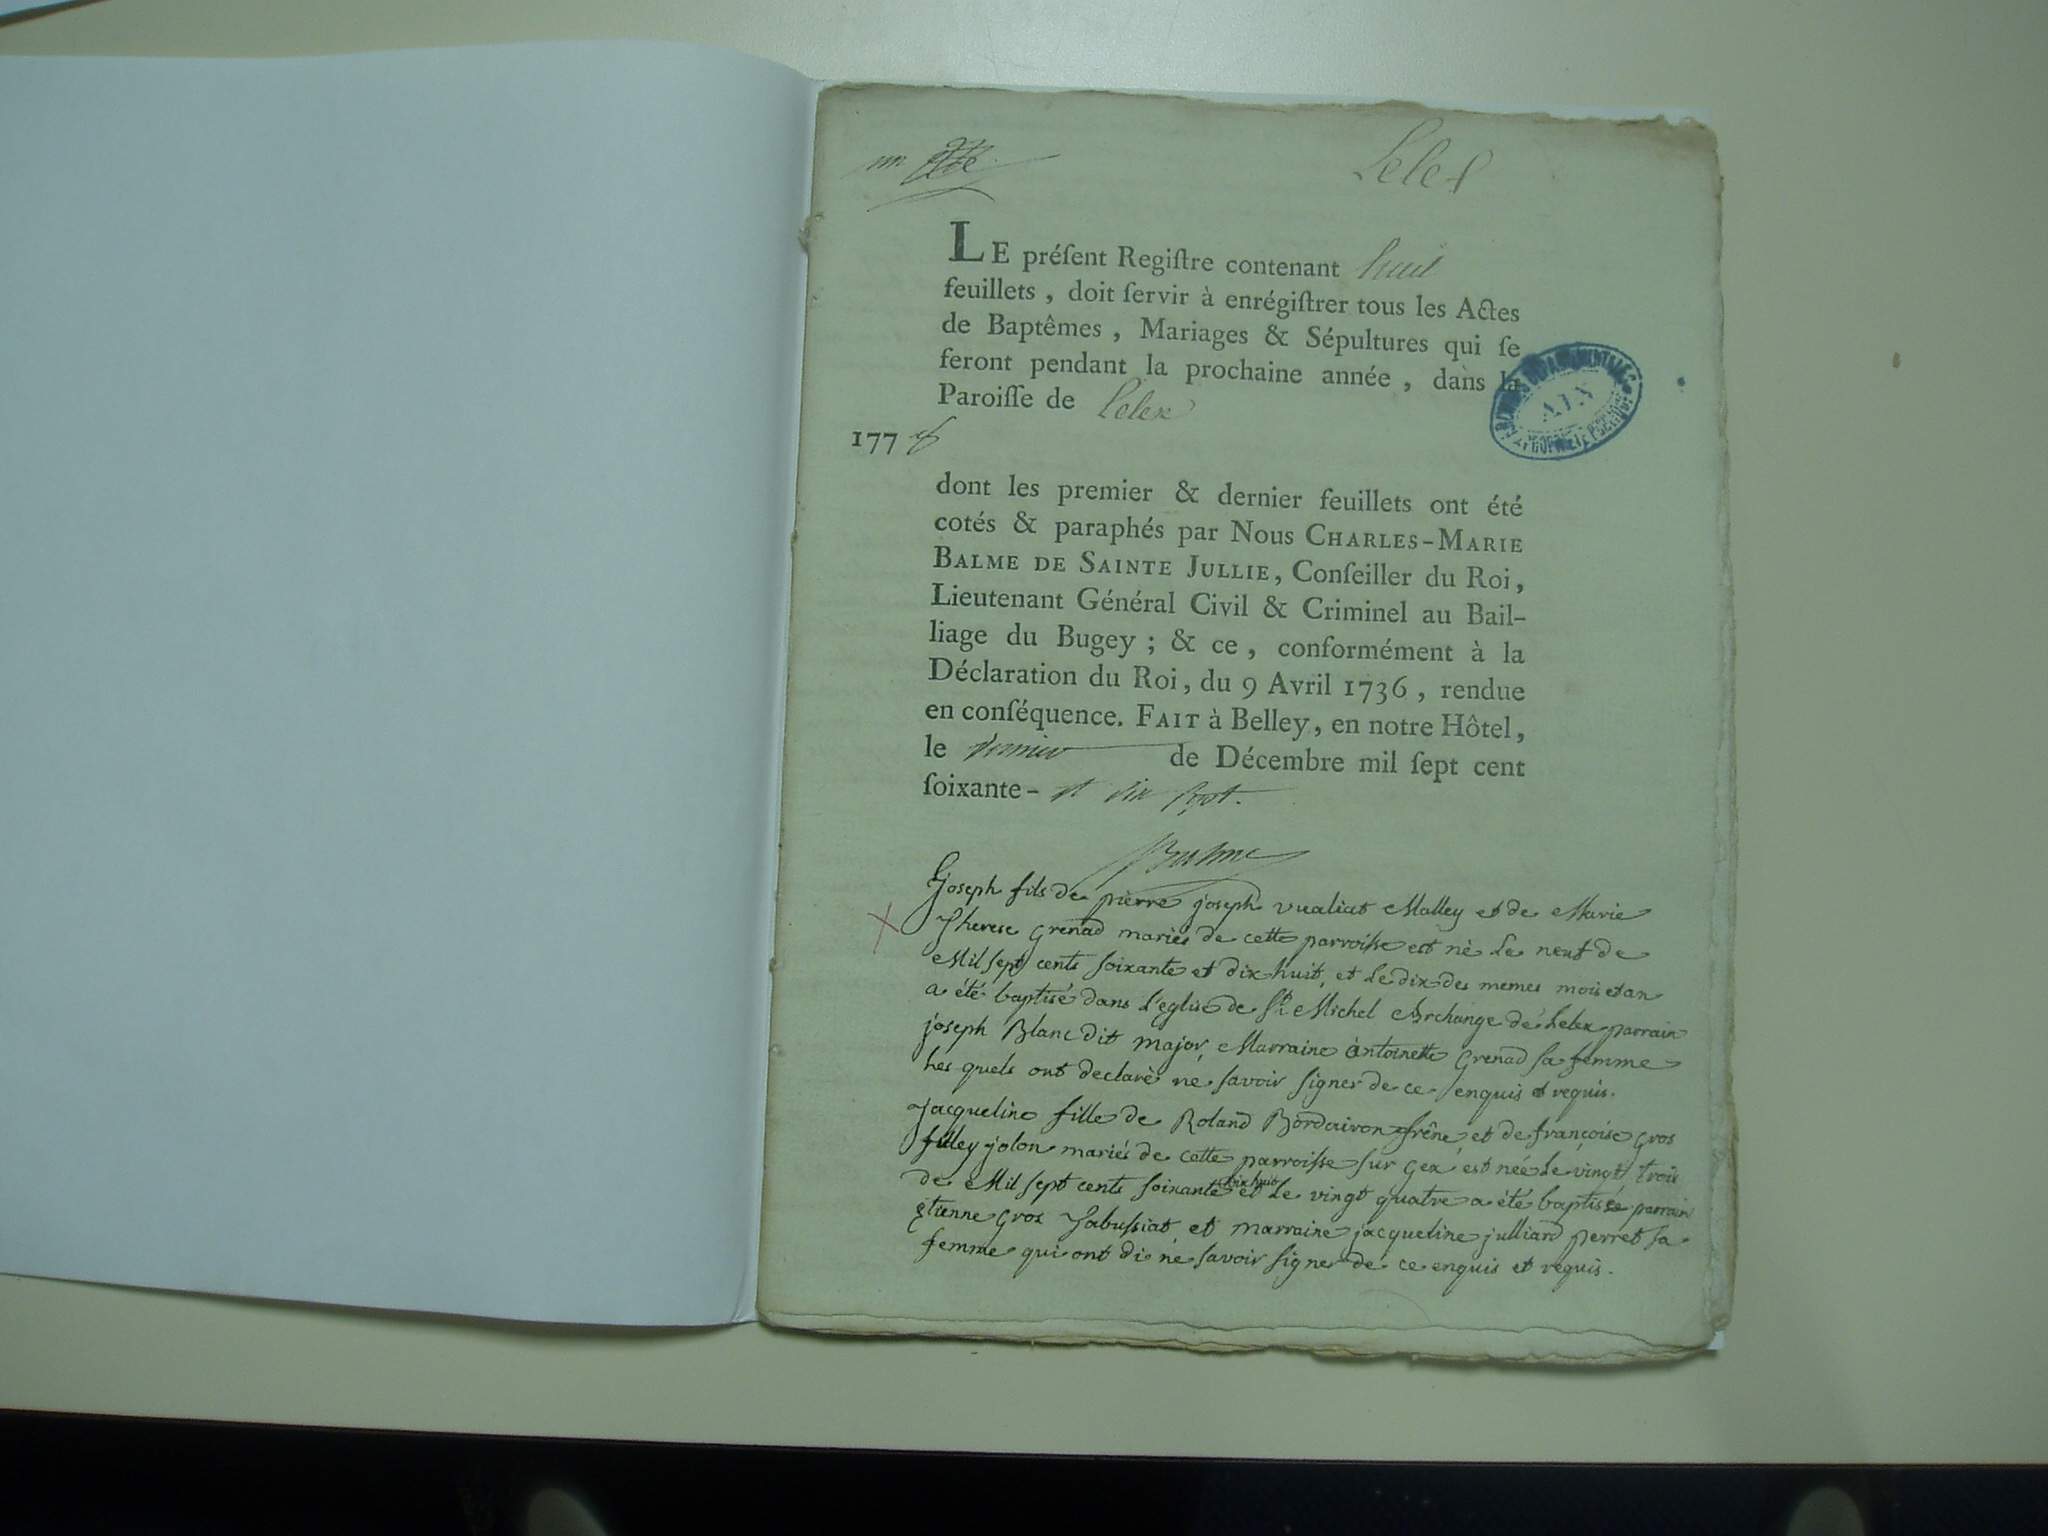 un
Lelex
LE préſent Regiſtre contenant huit
feuillets, doit ſervir à enrégiſtrer tous les Actes
de Baptêmes, Mariages & Sépultures qui ſe
feront pendant la prochaine année, dans la
Paroiſſe de Lelex
1778
ARCHIVES DÉPARTEMENTALES
AIN
PROPRIÉTÉ PUBLIQUE
dont les premier & dernier feuillets ont été
cotés & paraphés par Nous CHARLES-MARIE
BALME DE SAINTE JULLIE, Conſeiller du Roi,
Lieutenant Général Civil & Criminel au Bail-
liage du Bugey ; & ce, conformément à la
Déclaration du Roi, du 9 Avril 1736, rendue
en conſéquence. FAIT à Belley, en notre Hôtel,
le premier de Décembre mil ſept cent
ſoixante- et dix ſept.
Balme
joseph fils de pierre joseph vualiat Malley et de Marie
Therese grenad mariés de cette parroisse est né le neuf de
Mil sept cents soixante et dix huit, et le dix des memes mois et an
a été baptisé dans l'eglise de St. Michel Archange de Lelex parrain
joseph Blanc dit major, Marraine antoinette grenad sa femme
Les quels ont declaré ne savoir signer de ce enquis et requis.
Jacqueline fille de Roland Bordairon frêne et de françoise gros
filley jolon mariés de cette parroisse sur gex est née le vingt trois
de Mil sept cents soixante dix huit et le vingt quatre a été baptisée parrain
etienne gros Jabussiat et marraine jacqueline julliard perret sa
femme qui ont di né savoir signer de ce enquis et requis.